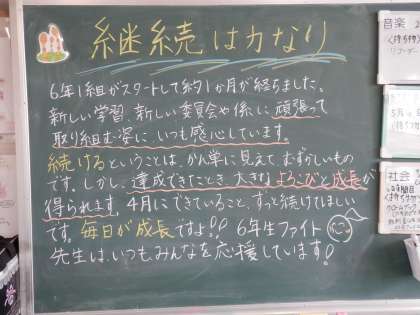 継続は力なり
6年1組がスタートして約1か月が経ちました。
新しい学習、新しい委員会や係に、頑張って
取り組む姿に、いつも感心しています。
続けるということは、かん単に見えてむずかしいもの
です。しかし、達成できたとき、大きなよろこびと成長が
得られます。4月にできていること、ずっと続けてほしい
です。毎日が成長ですよ!! 6年生ファイト
先生は、いつもみんなを応援しています!
音楽
社会